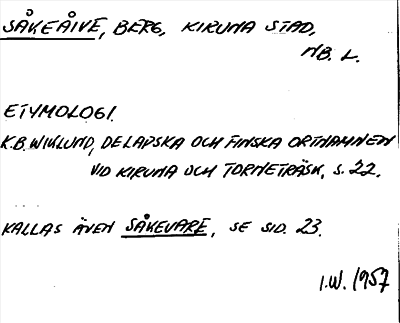 SÅKEÅIVE, BERG, KIRUNA STAD,
NB. L.
ETYMOLOGI.
K.B. WIKLUND, DE LAPSKA OCH FINSKA ORTNAMNEN
VID KIRUNA OCH TORNETRÄSK, S. 22.
KALLAS ÄVEN SÅKEVARE, SE SID. 23.
I.W. 1957